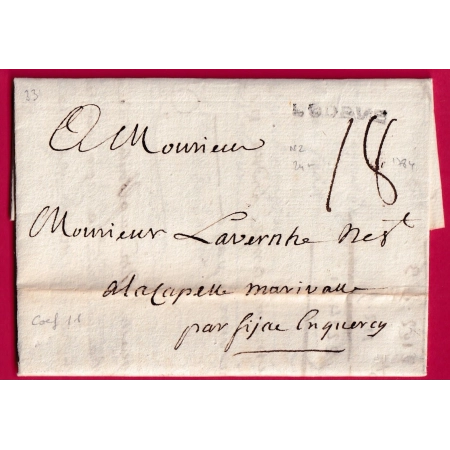 23
A Monsieur
18
N2
24 -
1784
Monsieur Lavernhe Neg.t
a lacapelle marivalle
Coef 11
par fijac Enquercy